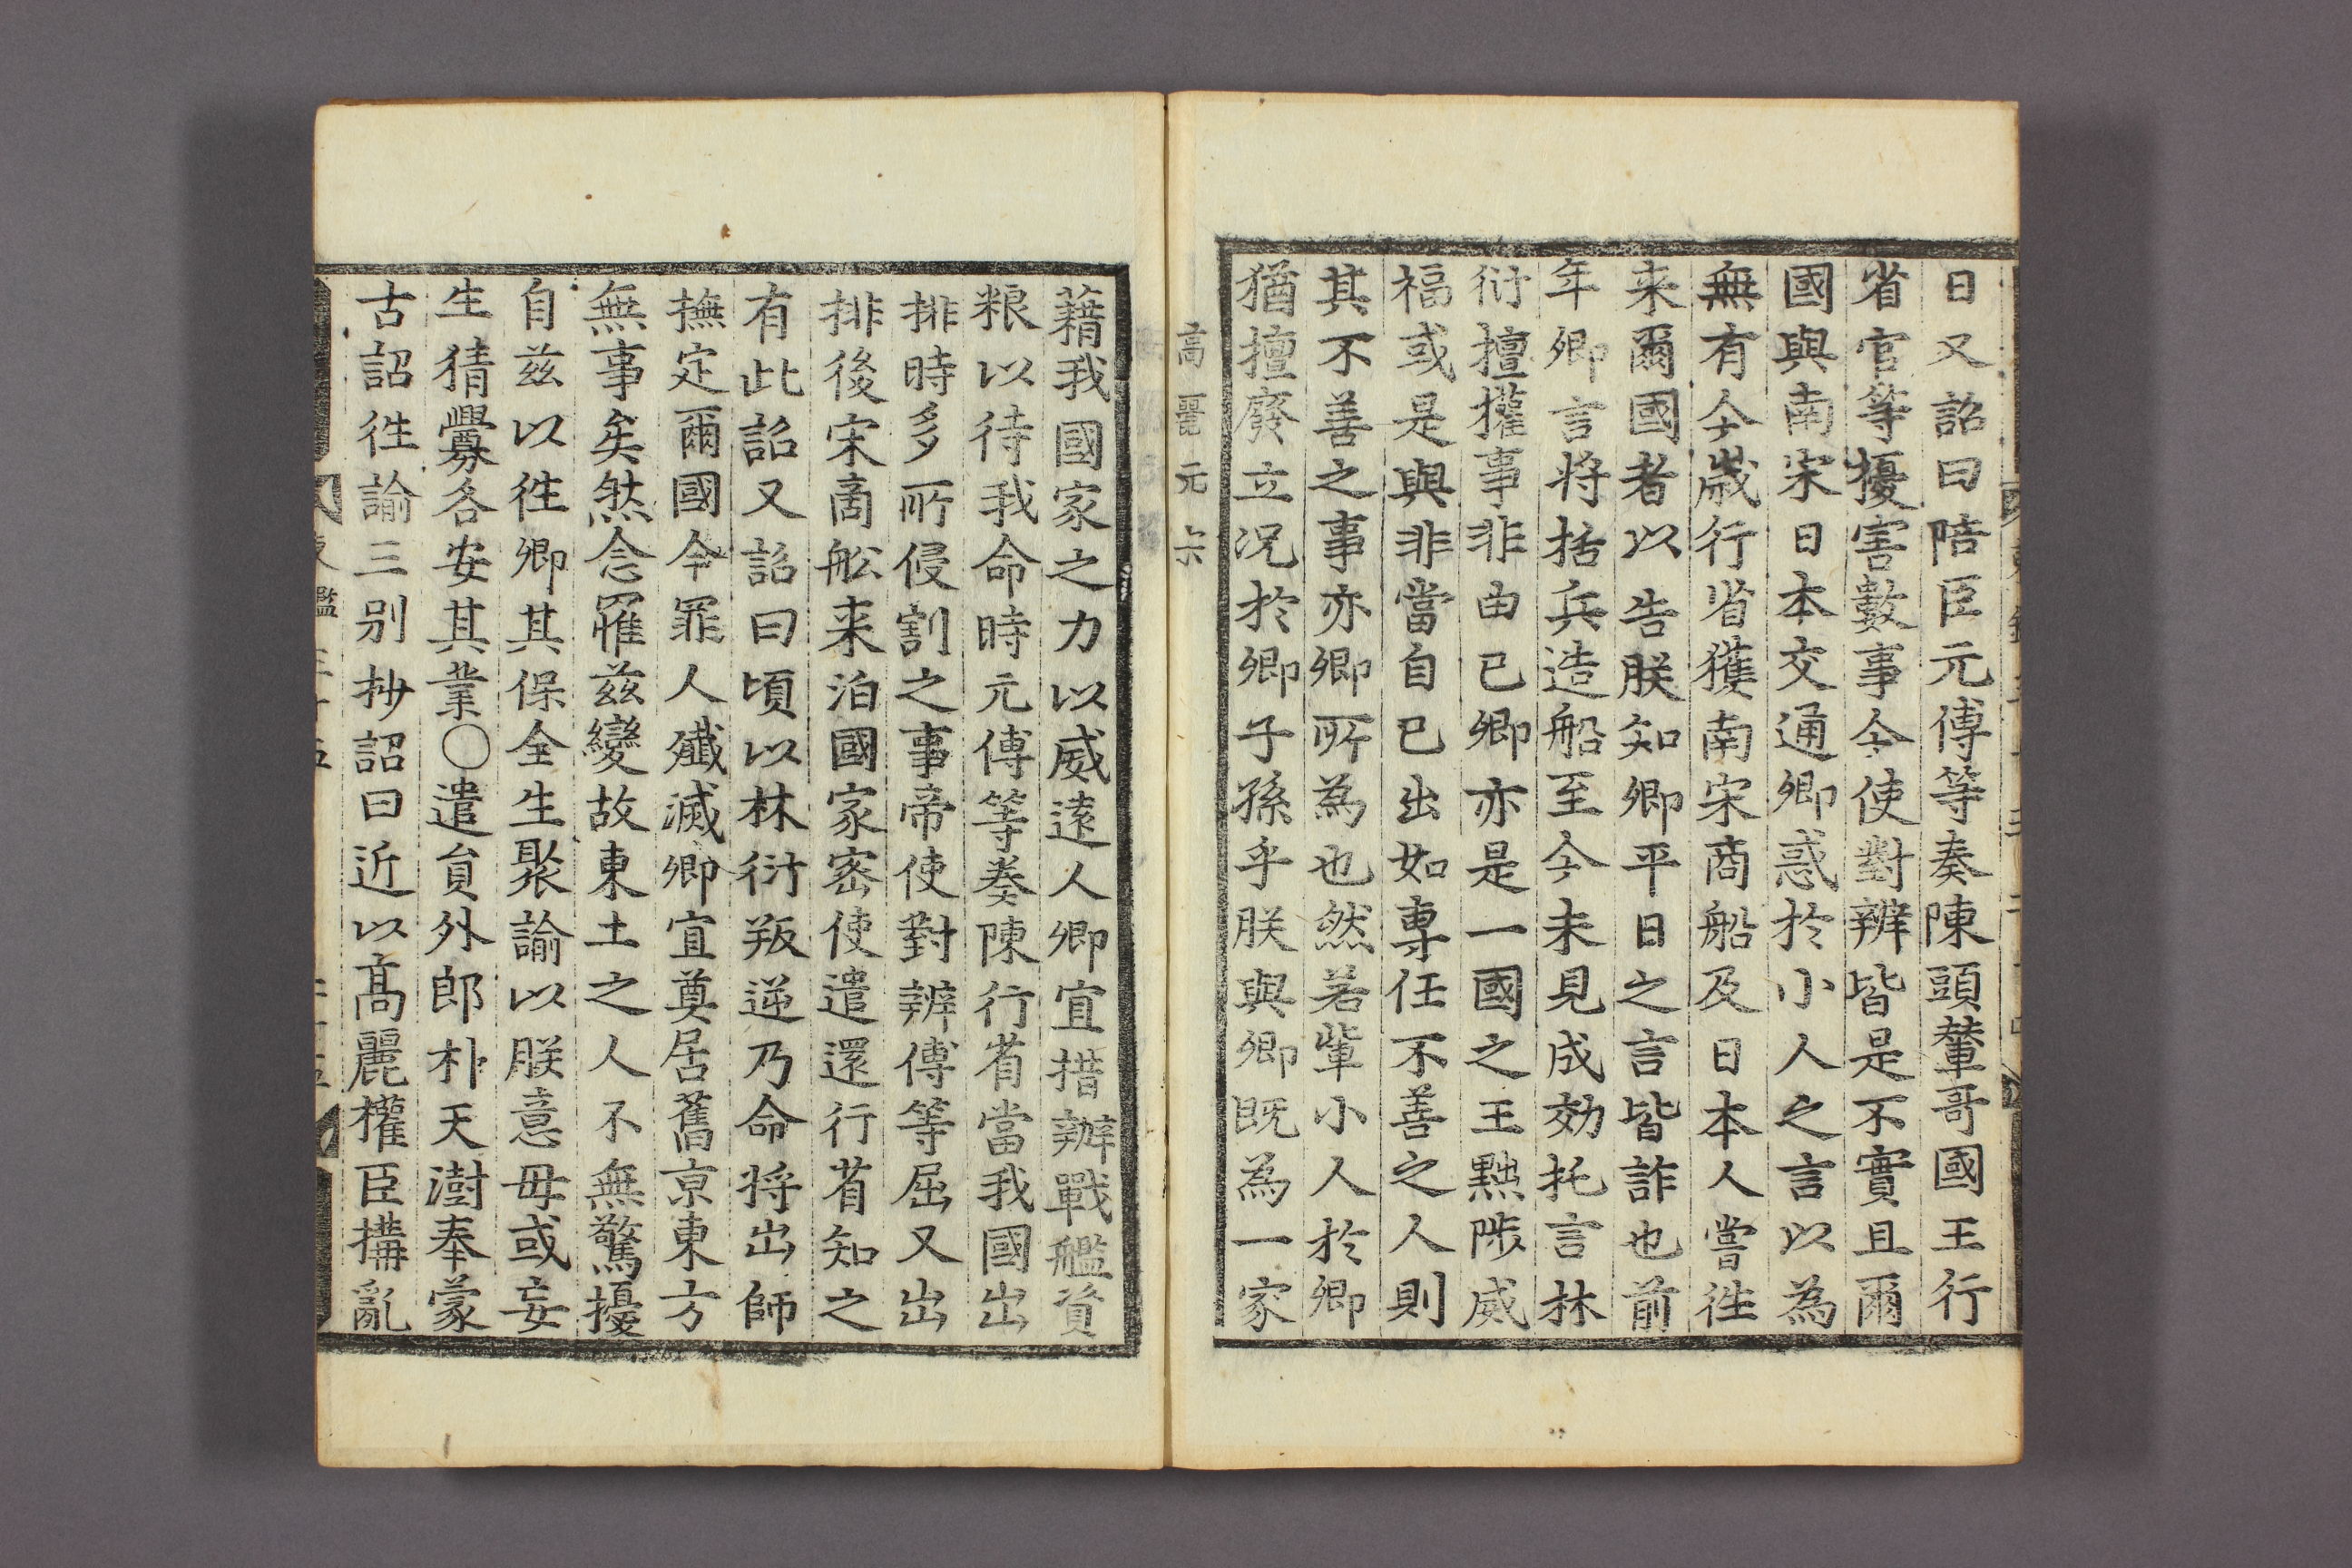 日又詔曰陪臣元傅等奏陳頭輦哥國王行
省官等擾害數事今使對辨皆是不實且爾
國與南宋日本交通卿惑於小人之言以為
無有今歲行省獲南宋商船及日本人嘗徃
来爾國者以告朕知卿平日之言皆詐也前
年卿言將括兵造船至今未見成効托言林
衍擅權事非由已卿亦是一國之王黜陟威
福或是與非當自已出如専任不善之人則
其不善之事亦卿所為也然若輩小人於卿
猶擅廢立况於卿子孫乎朕與卿既為一家
高麗元六
藉我國家之力以威遠人卿宜措辦戰艦資
粮以待我命時元傅等奏陳行省當我國出
排時多所侵割之事帝使對辨傅等屈又出
排後宋啇舩来泊國家密使遣還行省知之
有此詔又詔曰頃以林衍叛逆乃命将出師
撫定爾國今罪人殲滅卿宜奠居舊京東方
無事矣然念罹兹變故東土之人不無驚擾
自兹以徃卿其保全生聚諭以朕意毋或妄
生猜釁各安其業〇遣貟外郎朴天澍奉蒙
古詔徃諭三别抄詔曰近以髙麗權臣搆亂